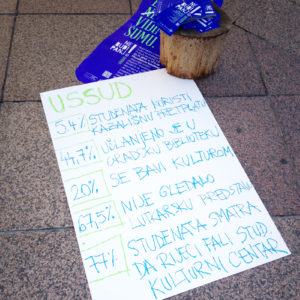 USSUD
54% STUDENATA KORISTI
KAZALIŠNU PRETPLATU
44,7% UČLANJENO JE U
GRADSKU BIBLIOTEKU
20% SE BAVI KULTUROM
67,5% NIJE GLEDALO
LUTKARSKU PREDSTAVU
77% STUDENATA SMATRA
DA RIJECI FALI STUD.
KULTURNI CENTAR